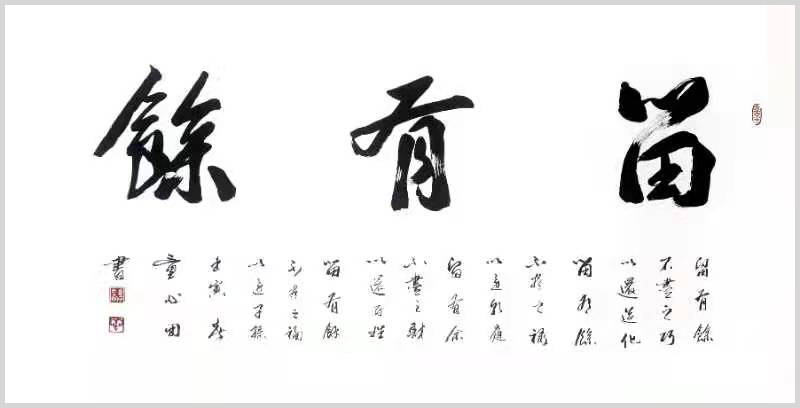 留有餘
留有餘
不盡之巧
以還造化
留有餘
不盡之祿
以還朝廷
留有余
不盡之財
以還百姓
留有餘
不盡之福
以還子孫
壬寅春
童心
書